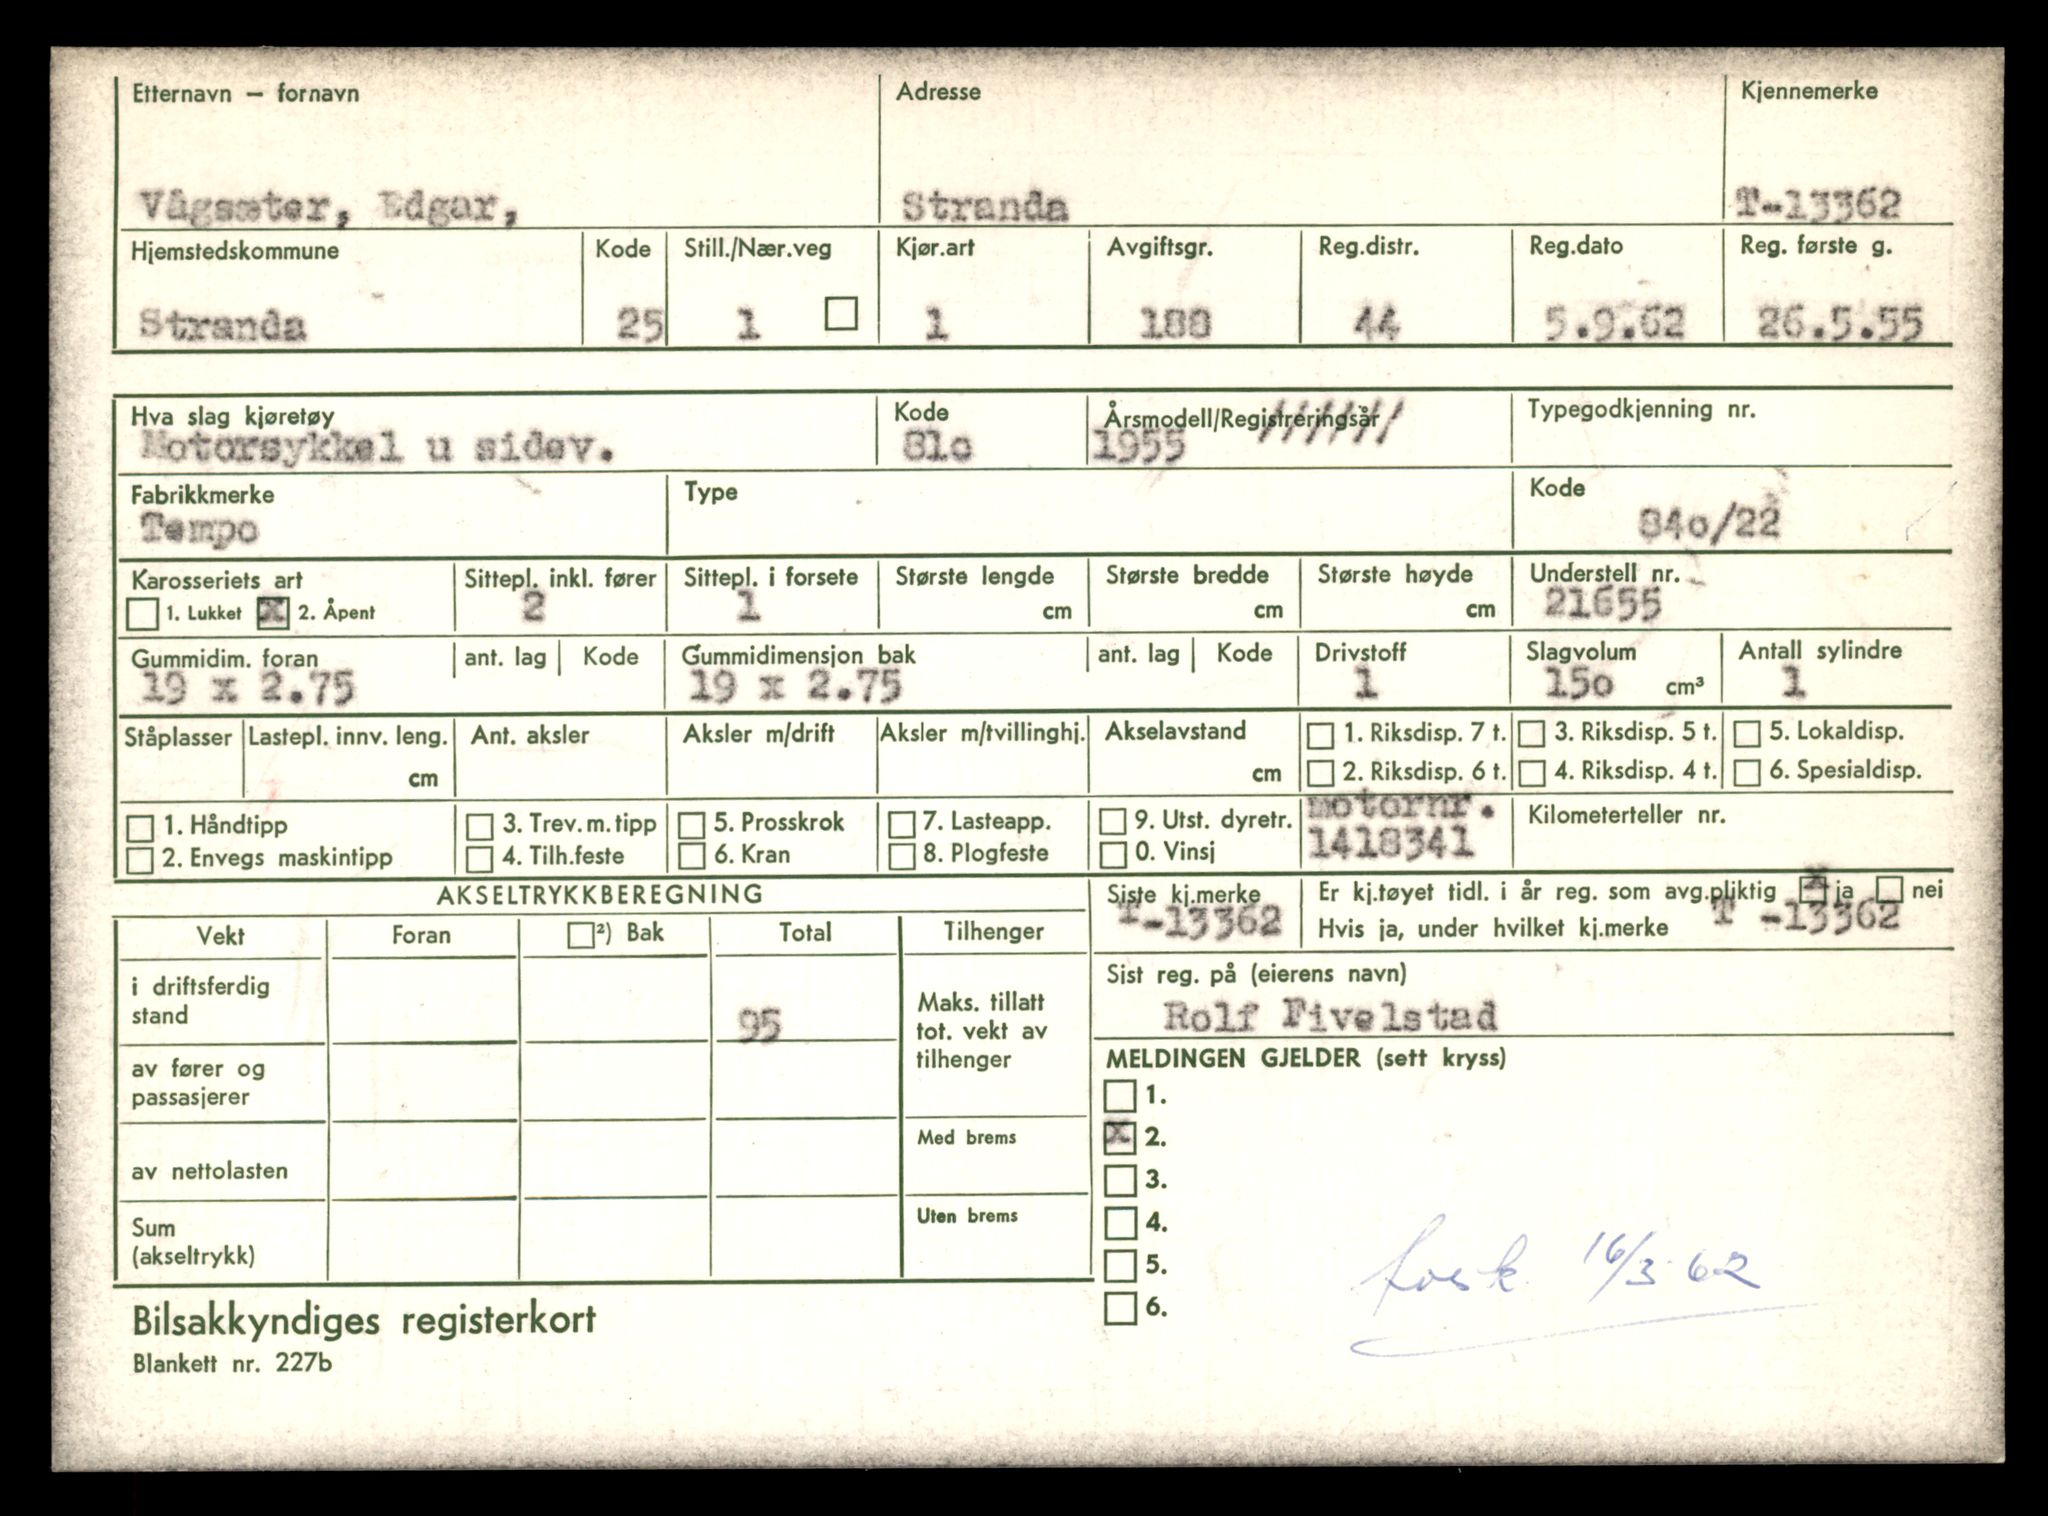 Etternavn – fornavn Adresse Kjennemerke
Vågsæter, Edgar, Stranda T-13362
Hjemstedskommune Kode Still./Nær.veg Kjør.art Avgiftsgr. Reg.distr. Reg.dato Reg. første g.
Stranda 25 1 1 188 44 5.9.62 26.5.55
Hva slag kjøretøy Kode Årsmodell/Registreringsår Typegodkjenning nr.
Motorsykkel u sidev. 81o 1955 //////
Fabrikkmerke Type Kode
Tempo 84o/22
Karosseriets art Sittepl. inkl. fører Sittepl. i forsete Største lengde Største bredde Største høyde Understell nr.
1. Lukket x 2. Åpent 2 1 cm cm cm 21655
Gummidim. foran ant. lag Kode Gummidimensjon bak ant. lag Kode Drivstoff Slagvolum Antall sylindre
19 x 2.75 19 x 2.75 1 15o cm³ 1
Ståplasser Lastepl. innv. leng. Ant. aksler Aksler m/drift Aksler m/tvillinghj. Akselavstand 1. Riksdisp. 7 t. 3. Riksdisp. 5 t. 5. Lokaldisp.
cm cm 2. Riksdisp. 6 t. 4. Riksdisp. 4 t. 6. Spesialdisp.
1. Håndtipp 3. Trev.m.tipp 5. Prosskrok 7. Lasteapp. 9. Utst. dyretr. motornr. Kilometerteller nr.
2. Envegs maskintipp 4. Tilh.feste 6. Kran 8. Plogfeste 0. Vinsj 1418341
AKSELTRYKKBEREGNING
Siste kj.merke Er kj.tøyet tidl. i år reg. som avg.pliktig x ja nei
T-13362 Hvis ja, under hvilket kj.merke T -13362
Vekt Foran ²) Bak Total Tilhenger
i driftsferdig
stand 95
Maks. tillatt
tot. vekt av
tilhenger
Sist reg. på (eierens navn)
Rolf Fivelstad
av fører og
passasjerer
MELDINGEN GJELDER (sett kryss)
1.
x 2.
3.
4.
5.
6.
Med brems
av nettolasten
Uten brems
Sum
(akseltrykk)
16/3 62
Bilsakkyndiges registerkort
Blankett nr. 227b